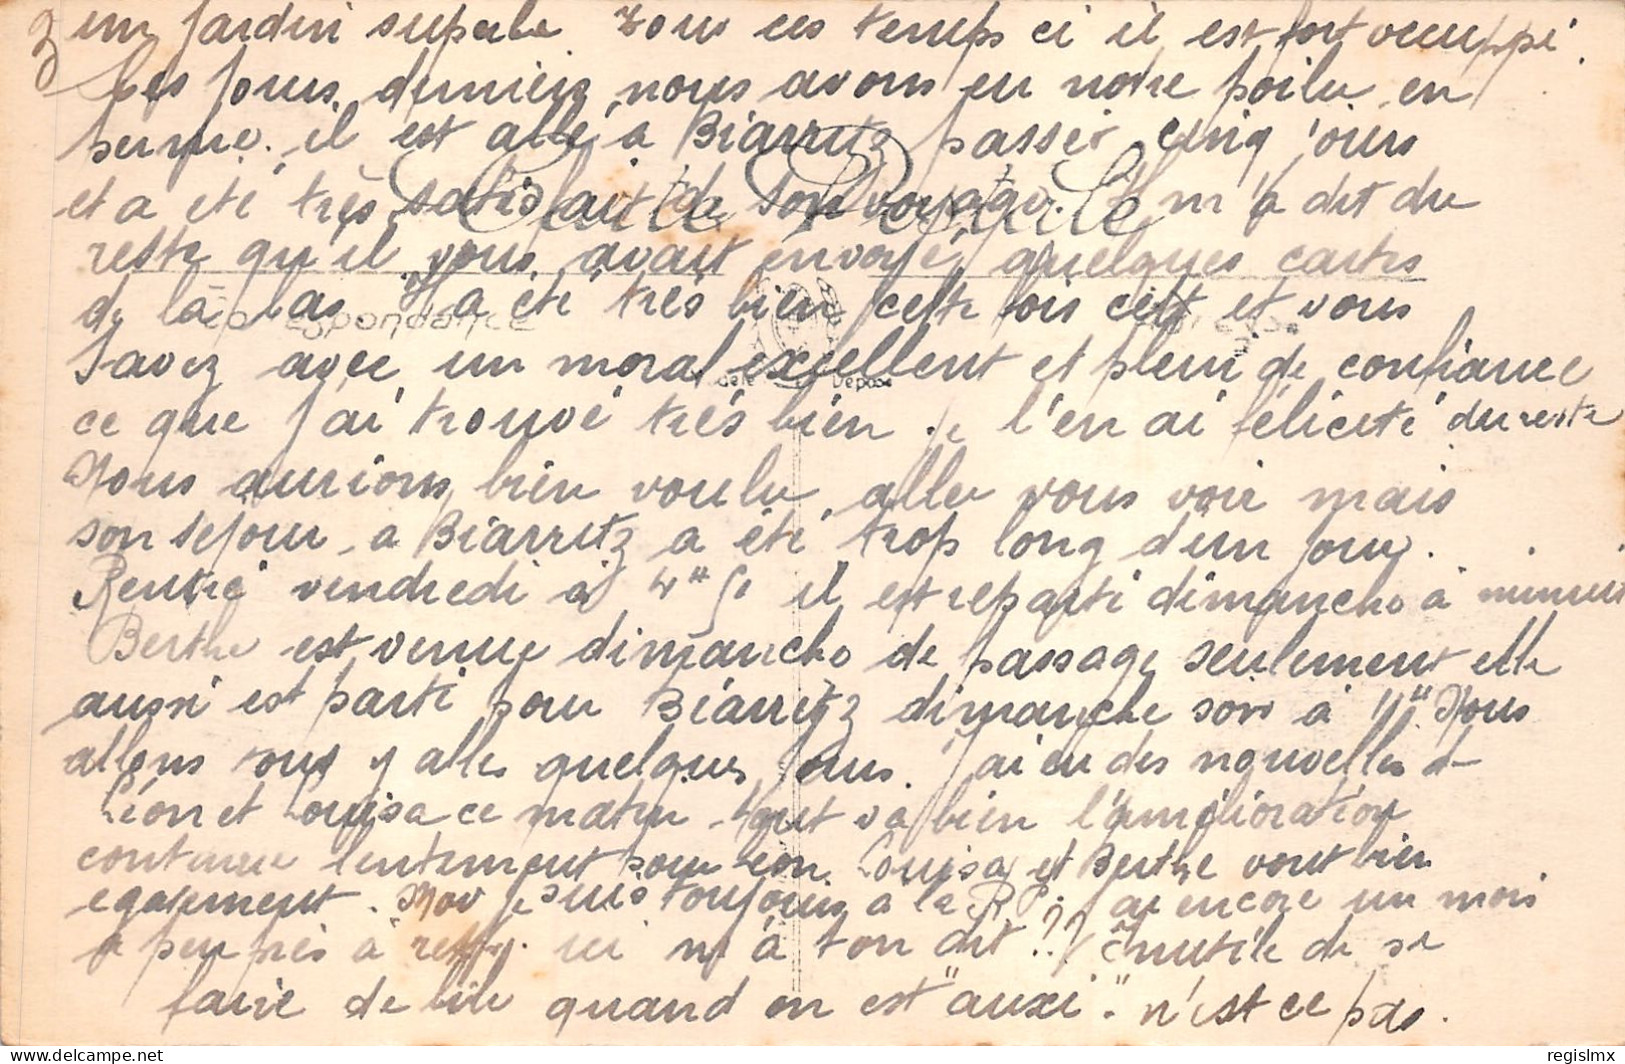 2 un jardin superbe. Tous ces temps ci il est fort occuppé.
Ces jours derniers nous avons eu notre poilu en
perme. il est allé à Biarritz passer cinq jours
et a été très satisfait de son voyage. Il m'a dit du
reste qu'il vous avait envoyé quelques cartes
de la bas. Il a été très bien cette fois cett et vous
Savez avec un moral excellent et plein de confiance
ce que j'ai trouvé très bien. je l'en ai félicité du reste
Nous aurions bien voulu aller vous voir mais
son séjour à Biarritz a été trop long d'un jour.
Rentré vendredi à il est reparti dimanche à minuit
Berthe est venue dimanche de passage seulement elle
aussi est parti pour Biarritz dimanche soir à 11". Nous
allons tous y aller quelques jours. J'ai eu des nouvelles de
Léon et Louisa ce matin tout va bien l'amélioration
continue lentement pour Léon. Louisa et Berthe vont bien
egalement. Moi je suis toujours à la R.P. j'ai encore un mois
à peu près à rester ici m'a ton dit ?? Inutile de se
faire de bile quand on est "auxi". n'est ce pas.
Carte Postale
Correspondance
Adresse
Modèle Déposé
regislmx